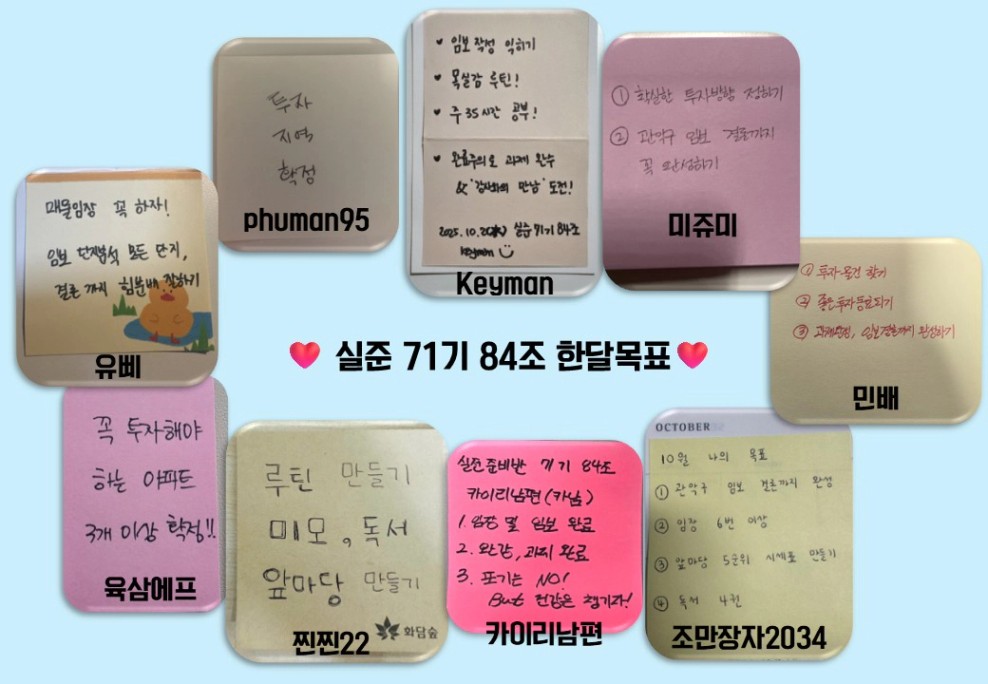 투자
지역
확정
phuman95
♥ 임보 작성 익히기
♥ 목실감 루틴!
♥ 주 35시간 공부!
♥ 완료주의로 과제 완수
& "강사와의 만남" 도전!
2025.10. 실준 71기 84조
Keymin
Keyman
① 확실한 투자방향 정하기
② 관악구 임보 결론까지
꼭 완성하기
미쥬미
매물임장 꼭 하자!
임보 단지분석 모든 단지,
결론까지 힘분배 잘하기
유삐
① 투자 물건 찾기
② 좋은 투자 동료되기
③ 과제, 임보 결론까지 완성하기
민배
실준 71기 84조 한달목표
꼭 투자해야
하는 아파트
3개 이상 확정!!
육삼에프
루틴 만들기
미모, 독서
앞마당 만들기
화담숲
찐찐22
실준준비반 71기 84조
카이리남편(카남)
1. 임장 및 임보 완료
2. 완강, 과제 완료
3. 포기는 NO!
But 건강은 챙기자!
카이리남편
OCTOBER
10월 나의 목표
① 관악구 임보 결론까지 완성
② 임장 6번 이상
③ 앞마당 5순위 시세표 만들기
④ 독서 4권
조만장자2034